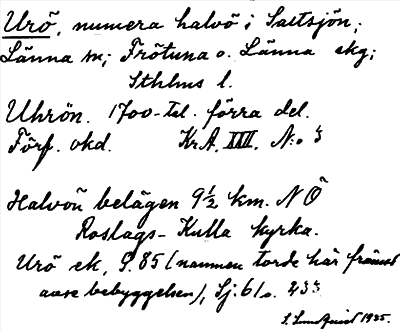 Urö, numera halvö i Saltsjön;
Länna sn; Frötuna o. Länna skg;
Sthlms l.
Uhrön. 1700-tal. förra del.
Förf. okd. Kr.A. XIII. N:o
Halvön belägen 9½ km. NÖ
Roslags-Kulla kyrka.
Urö ek, S. 85 (namnen torde här främst
avse bebyggelsen), Sj: 61
1935.